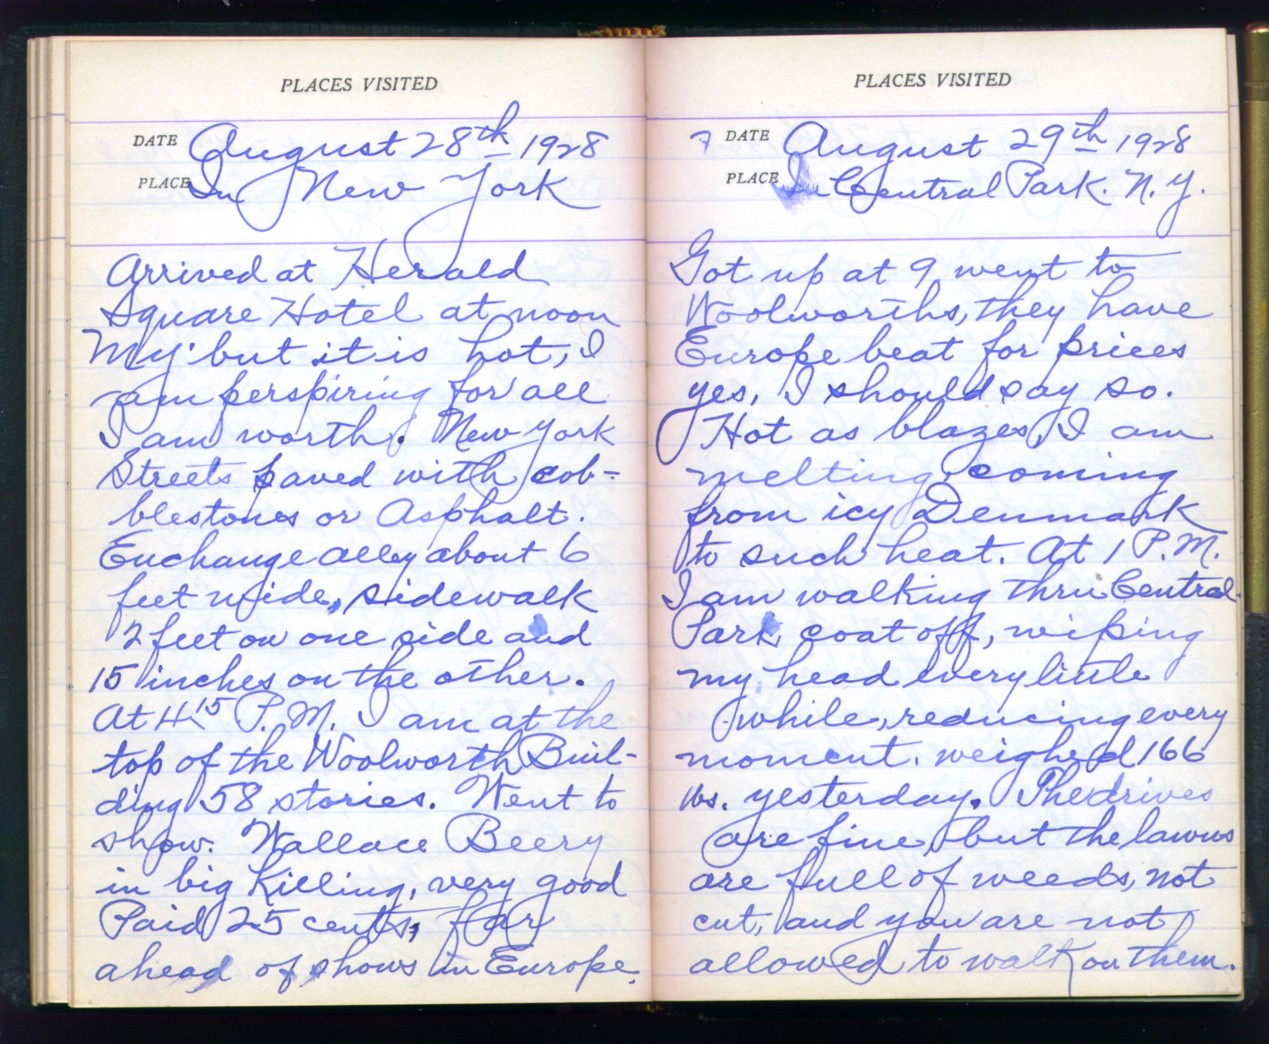 PLACES VISITED
DATE August 28th 1928
PLACE In New York
Arrived at Herald
Square Hotel at noon
My' but it is hot, I
am perspiring for all
I am worth. New York
Streets paved with cob-
blestones or Asphalt.
Exchange alley about 6
feet wide, sidewalk
2 feet on one side and
15 inches on the other.
At 4 15 P.M. I am at the
top of the Woolworth Buil-
ding 58 stories. Went to
show. Wallace Beery
in big Killing, very good
Paid 25 cents, far
ahead of shows in Europe.
PLACES VISITED
DATE August 29th 1928
PLACE In Central Park. N.Y.
Got up at 9 went to
Woolworths, they have
Europe beat for prices
yes, I should say so.
Hot as blazes, I am
melting, coming
from icy Denmark
to such heat. At 1 P.M.
I am walking thru Central
Park, coat off, wiping
my head every little
while, reducing every
moment. weighed 166
lbs. yesterday. The drives
are fine, but the lawns
are full of weeds, not
cut, and you are not
allowed to walk on them.